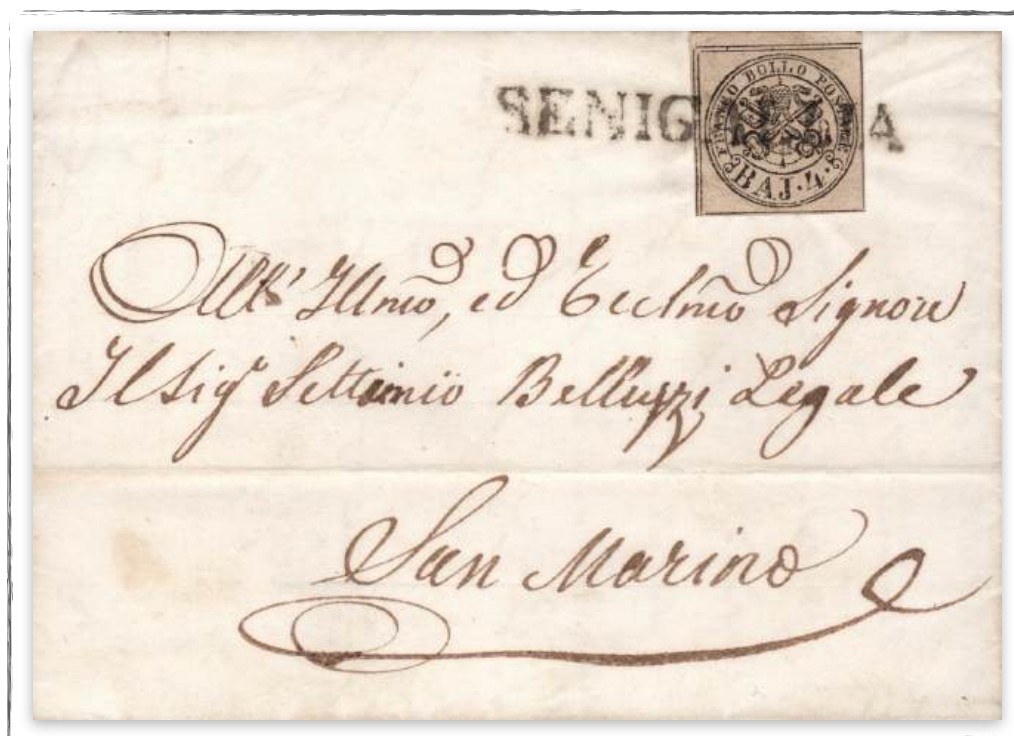 SENIGALLIA
FRANCO BOLLO POSTALE
BAJ. 4.
All' Illmo, ed Ecclmo Signore
Il Sigr Settimio Belluzzi Legale
San Marino